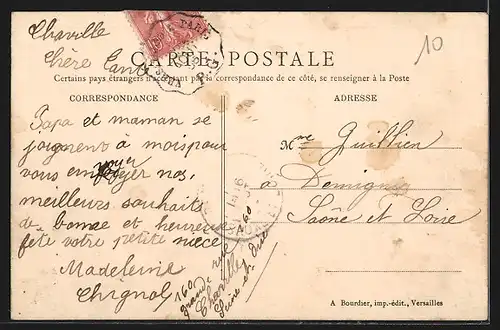 Chaville
Chère Tante
10
CARTE POSTALE
Certains pays étrangers n'acceptant pas la correspondance de ce côté, se renseigner à la Poste
CORRESPONDANCE
ADRESSE
Papa et maman se
joignent à moi pour
vous envoyer nos,
meilleurs souhaits
de bonne et heureuse
fête votre petite nièce
Madeleine
Chignol
160
grande rue 160
Chaville
Seine et Oise
Mme Guillien
à Demigny
Saône et Loire
PARIS
A Bourdier, imp.-édit., Versailles